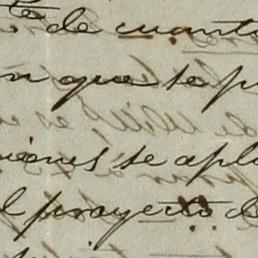 te de cuanto
n que se p
iones se apl
l proyecto de